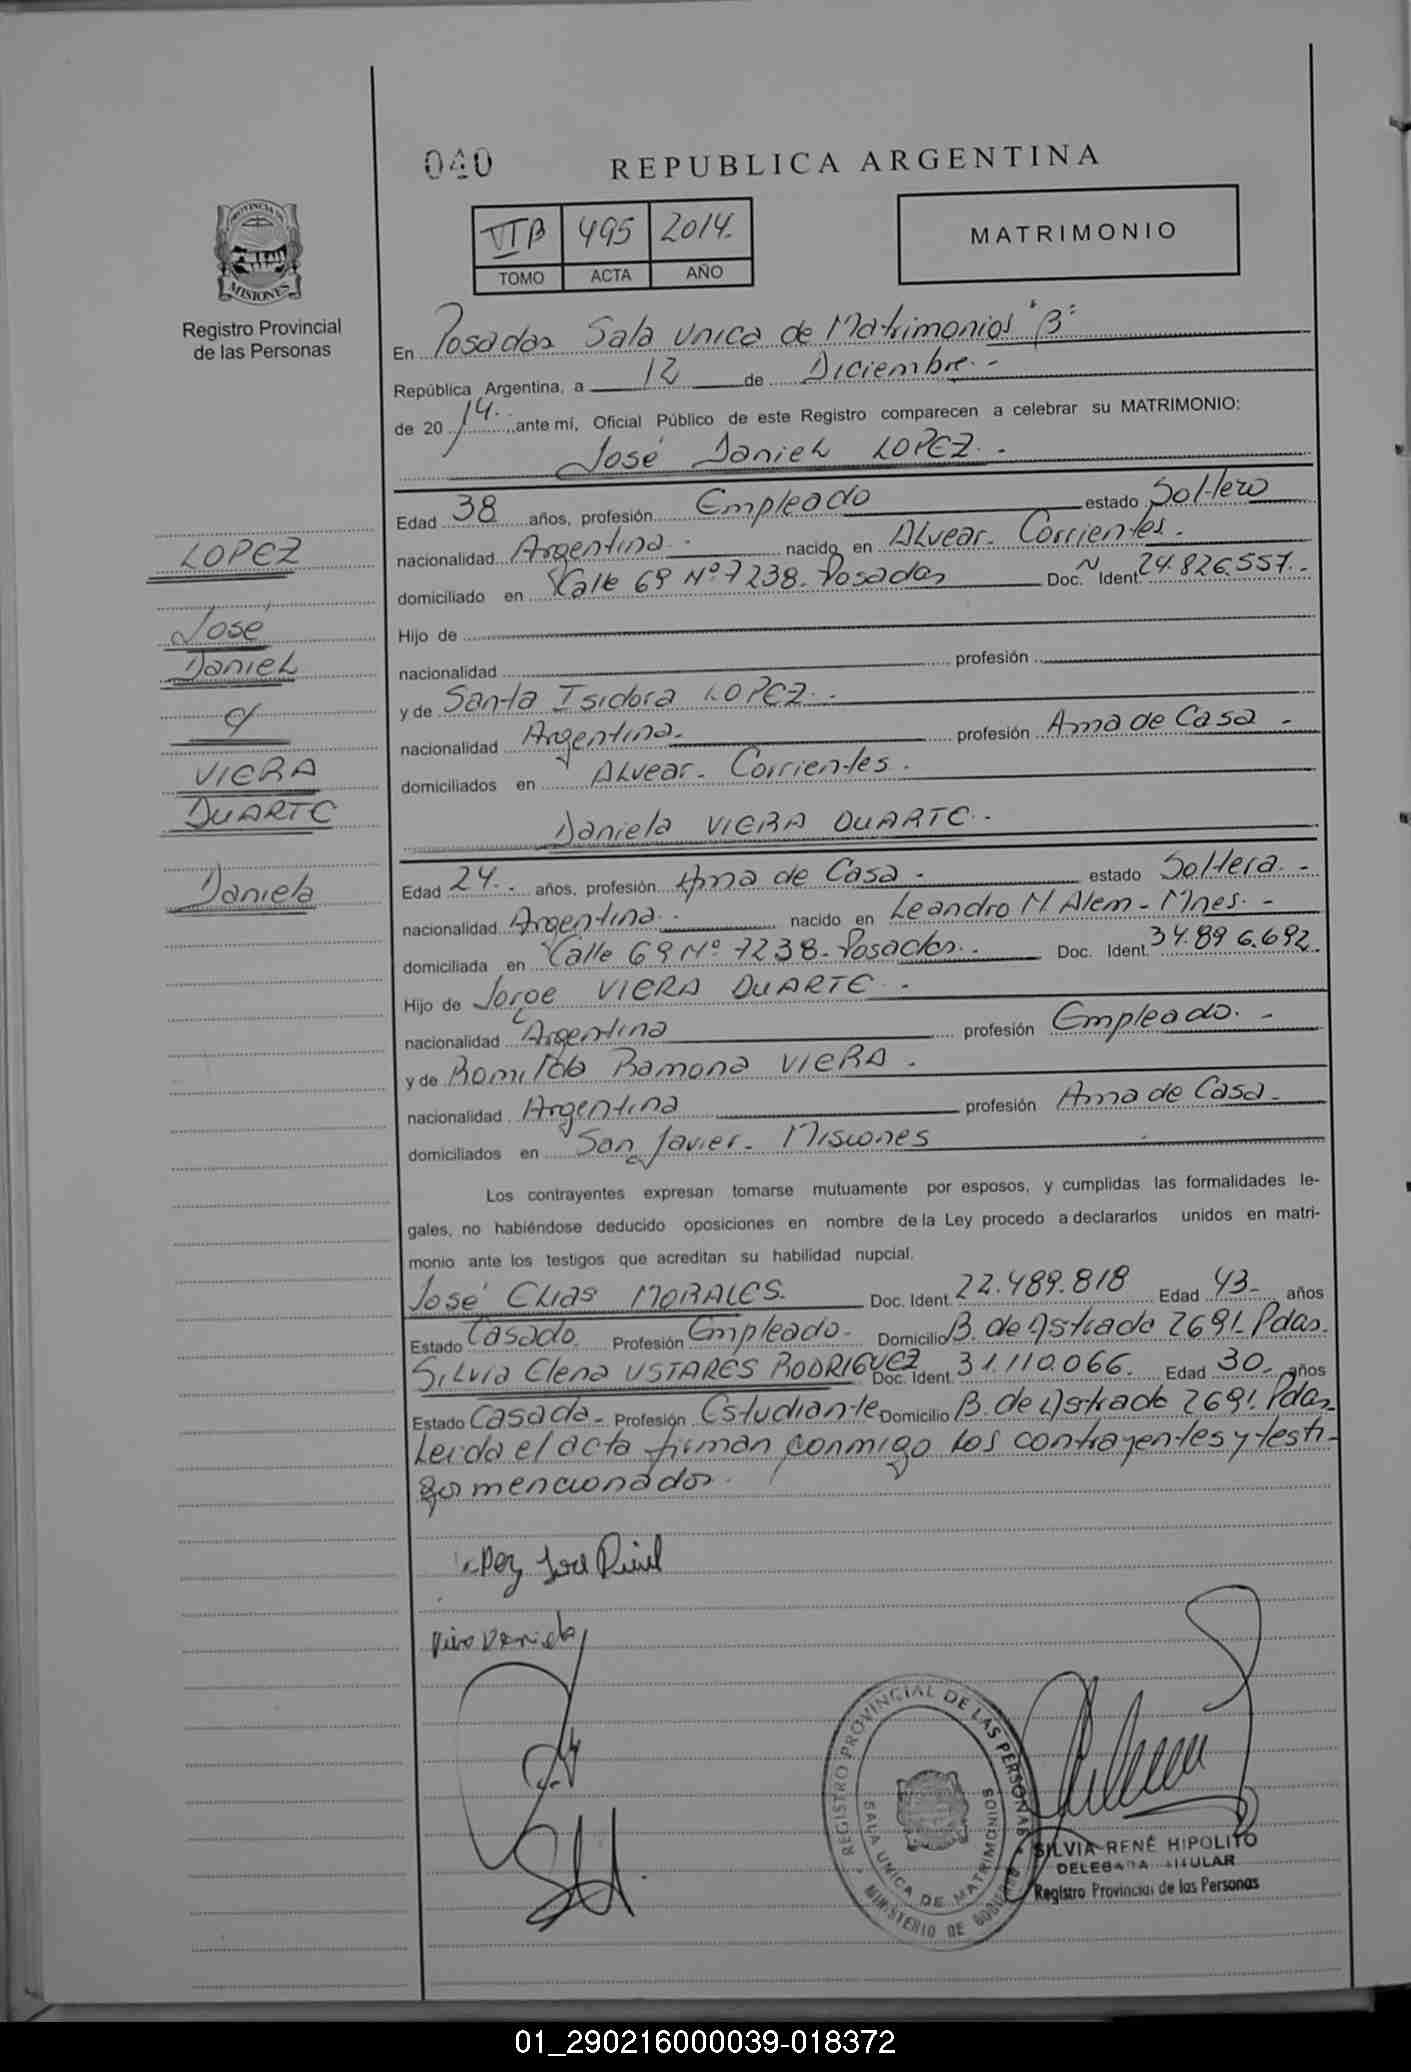 040
REPUBLICA ARGENTINA
VIB 495 2014.
TOMO ACTA AÑO
MATRIMONIO
PROVINCIA DE
MISIONES
Registro Provincial
de las Personas
En Posadas Sala Unica de Matrimonios "B"
República Argentina, a 12 de Diciembre.-
de 2014.- ante mí, Oficial Público de este Registro comparecen a celebrar su MATRIMONIO:
José Daniel LOPEZ.-
Edad 38 años, profesión Empleado estado Soltero
nacionalidad Argentina.- nacido en Alvear. Corrientes.
domiciliado en Calle 69 Nº 7238. Posadas Doc. Ident. 24.826.557.-
Hijo de
nacionalidad profesión
y de Santa Isidora LOPEZ.-
nacionalidad Argentina. profesión Ama de Casa.-
domiciliados en Alvear. Corrientes.
LOPEZ
José
Daniel
c/
VIERA
DUARTE
Daniela
Daniela VIERA DUARTE.-
Edad 24.- años, profesión Ama de Casa.- estado Soltera.-
nacionalidad Argentina.- nacido en Leandro N Alem - Mnes.-
domiciliada en Calle 69 Nº 7238. Posadas.- Doc. Ident. 34.896.692.
Hijo de Jorge VIERA DUARTE.-
nacionalidad Argentina profesión Empleado.-
y de Romilda Ramona VIERA.
nacionalidad Argentina profesión Ama de Casa.-
domiciliados en San Javier. Misiones
Los contrayentes expresan tomarse mutuamente por esposos, y cumplidas las formalidades le-
gales, no habiéndose deducido oposiciones en nombre de la Ley procedo a declararlos unidos en matri-
monio ante los testigos que acreditan su habilidad nupcial.
José Elias MORALES. Doc. Ident. 22.489.818 Edad 43- años
Estado Casado. Profesión Empleado.- Domicilio B. de Astrada 2691- Pdas.
Silvia Elena USTARES RODRIGUEZ Doc. Ident. 31.110.066. Edad 30- años
Estado Casada- Profesión Estudiante Domicilio B. de Astrada 2691 Pdas-
Leida el acta firman conmigo los contrayentes y testi-
gos mencionados.
Lopez José Daniel
Viera Daniela
REGISTRO PROVINCIAL DE LAS PERSONAS
SALA UNICA DE MATRIMONIOS
MINISTERIO DE GOBIERNO
SILVIA RENÉ HIPOLITO
DELEGADA TITULAR
Registro Provincial de las Personas
01_290216000039-018372